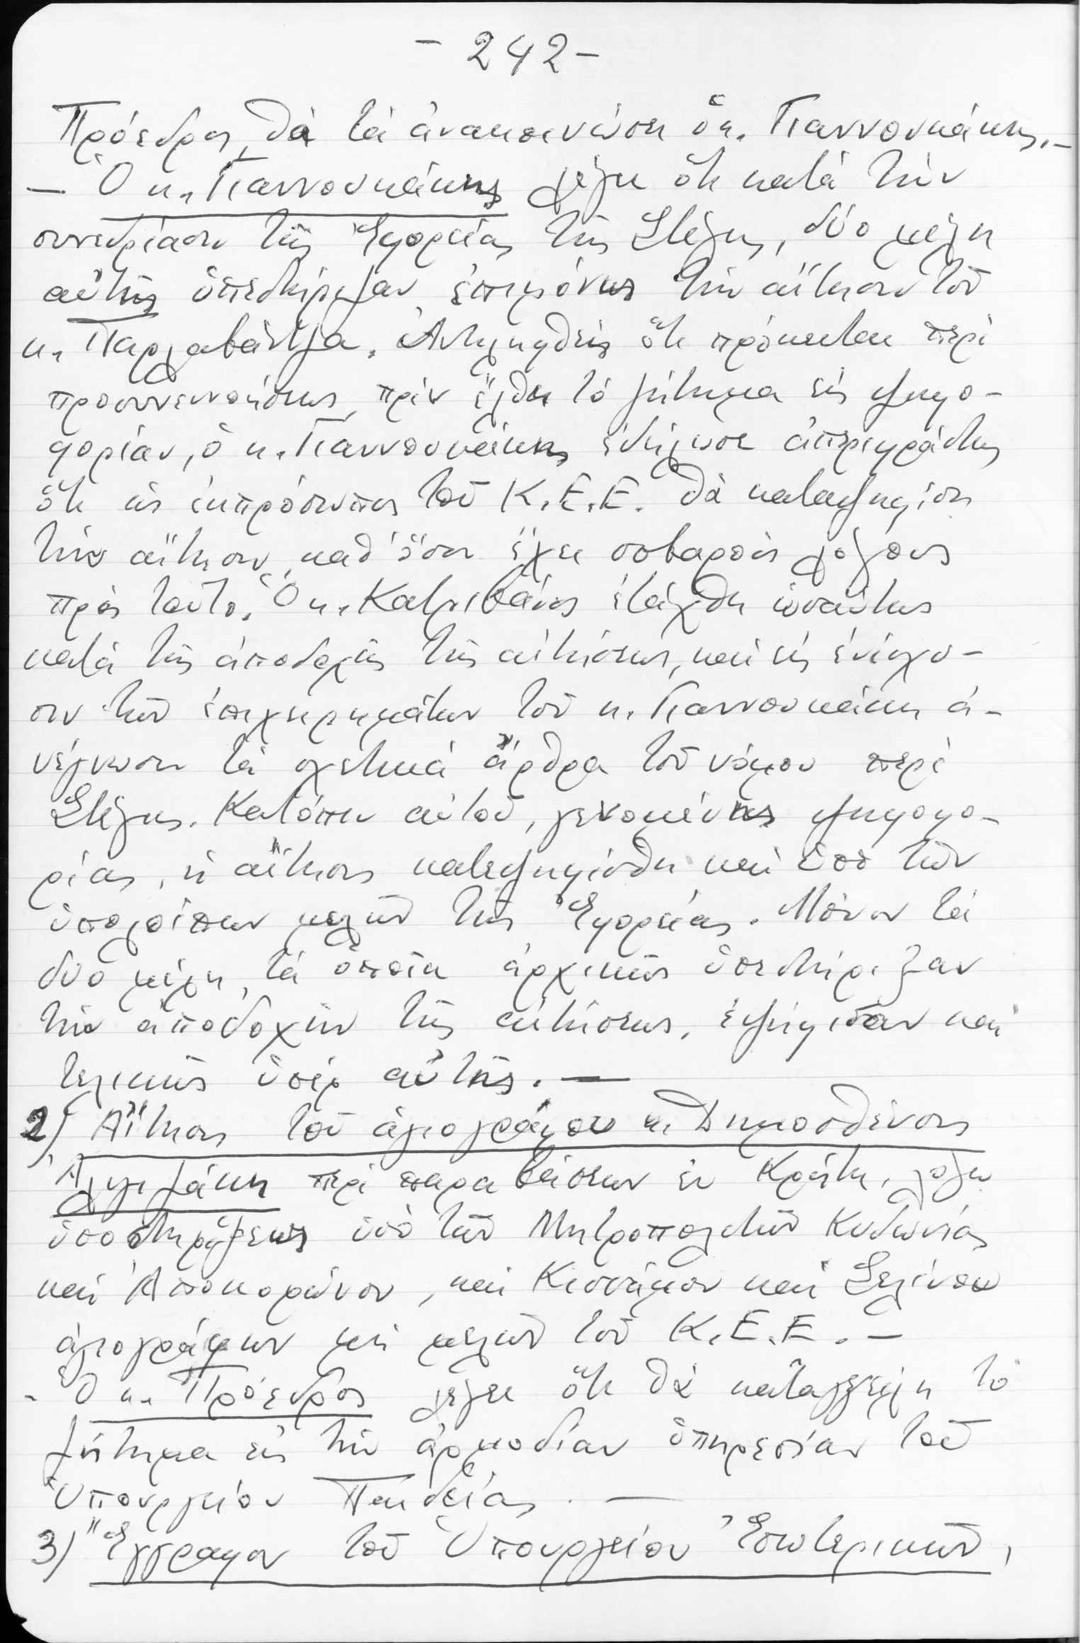 - 242 -
Πρόεδρος, θὰ τὰ ἀνακοινώση ὁ κ. Γιαννουκάκης.-
- Ὁ κ. Γιαννουκάκης λέγει ὅτι κατὰ τὴν
συνεδρίασιν τῆς Ἐφορείας τῆς Στέγης, δύο μέλη
αὐτῆς ὑπεστήριξαν ἐπιμόνως τὴν αἴτησιν τοῦ
κ. Παρλαβάντζα. Ἀντιληφθεὶς ὅτι πρόκειται περὶ
προσυνεννοήσεως, πρὶν ἔλθει τὸ ζήτημα εἰς ψηφο-
φορίαν, ὁ κ. Γιαννουκάκης ἐδήλωσε ἀπεριφράστως
ὅτι ὡς ἐκπρόσωπος τοῦ Κ.Ε.Ε. θὰ καταψηφίση
τὴν αἴτησιν, καθ' ὅσον ἔχει σοβαροὺς λόγους
πρὸς τοῦτο. Ὁ κ. Κατριβάνος ἐτάχθη ὡσαύτως
κατὰ τῆς ἀποδοχῆς τῆς αἰτήσεως, καὶ εἰς ἐνίσχυ-
σιν τῶν ἐπιχειρημάτων τοῦ κ. Γιαννουκάκη ἀ-
νέγνωσεν τὰ σχετικὰ ἄρθρα τοῦ νόμου περὶ
Στέγης. Κατόπιν αὐτοῦ, γενομένης ψηφοφο-
ρίας, ἡ αἴτησις κατεψηφίσθη καὶ ὑπὸ τῶν
ὑπολοίπων μελῶν τῆς Ἐφορείας. Μόνον τὰ
δύο μέλη, τὰ ὁποῖα ἀρχικῶς ὑπεστήριξαν
τὴν ἀποδοχὴν τῆς αἰτήσεως, ἐψήφισαν καὶ
τελικῶς ὑπὲρ αὐτῆς. -
2) Αἴτησις τοῦ ἁγιογράφου κ. Δημοσθένους
περὶ παραβάσεων ἐν Κρήτη, λόγω
ὑποστηρίξεως ὑπὸ τῶν Μητροπολιτῶν Κυδωνίας
καὶ Ἀποκορώνου, καὶ Κισσάμου καὶ Σελίνου
ἁγιογράφων μὴ μελῶν τοῦ Κ.Ε.Ε. -
- Ὁ κ. Πρόεδρος λέγει ὅτι θὰ καταγγείλη τὸ
ζήτημα εἰς τὴν ἁρμοδίαν ὑπηρεσίαν τοῦ
Ὑπουργείου Παιδείας. -
3) Ἔγγραφον τοῦ Ὑπουργείου Ἐσωτερικῶν,